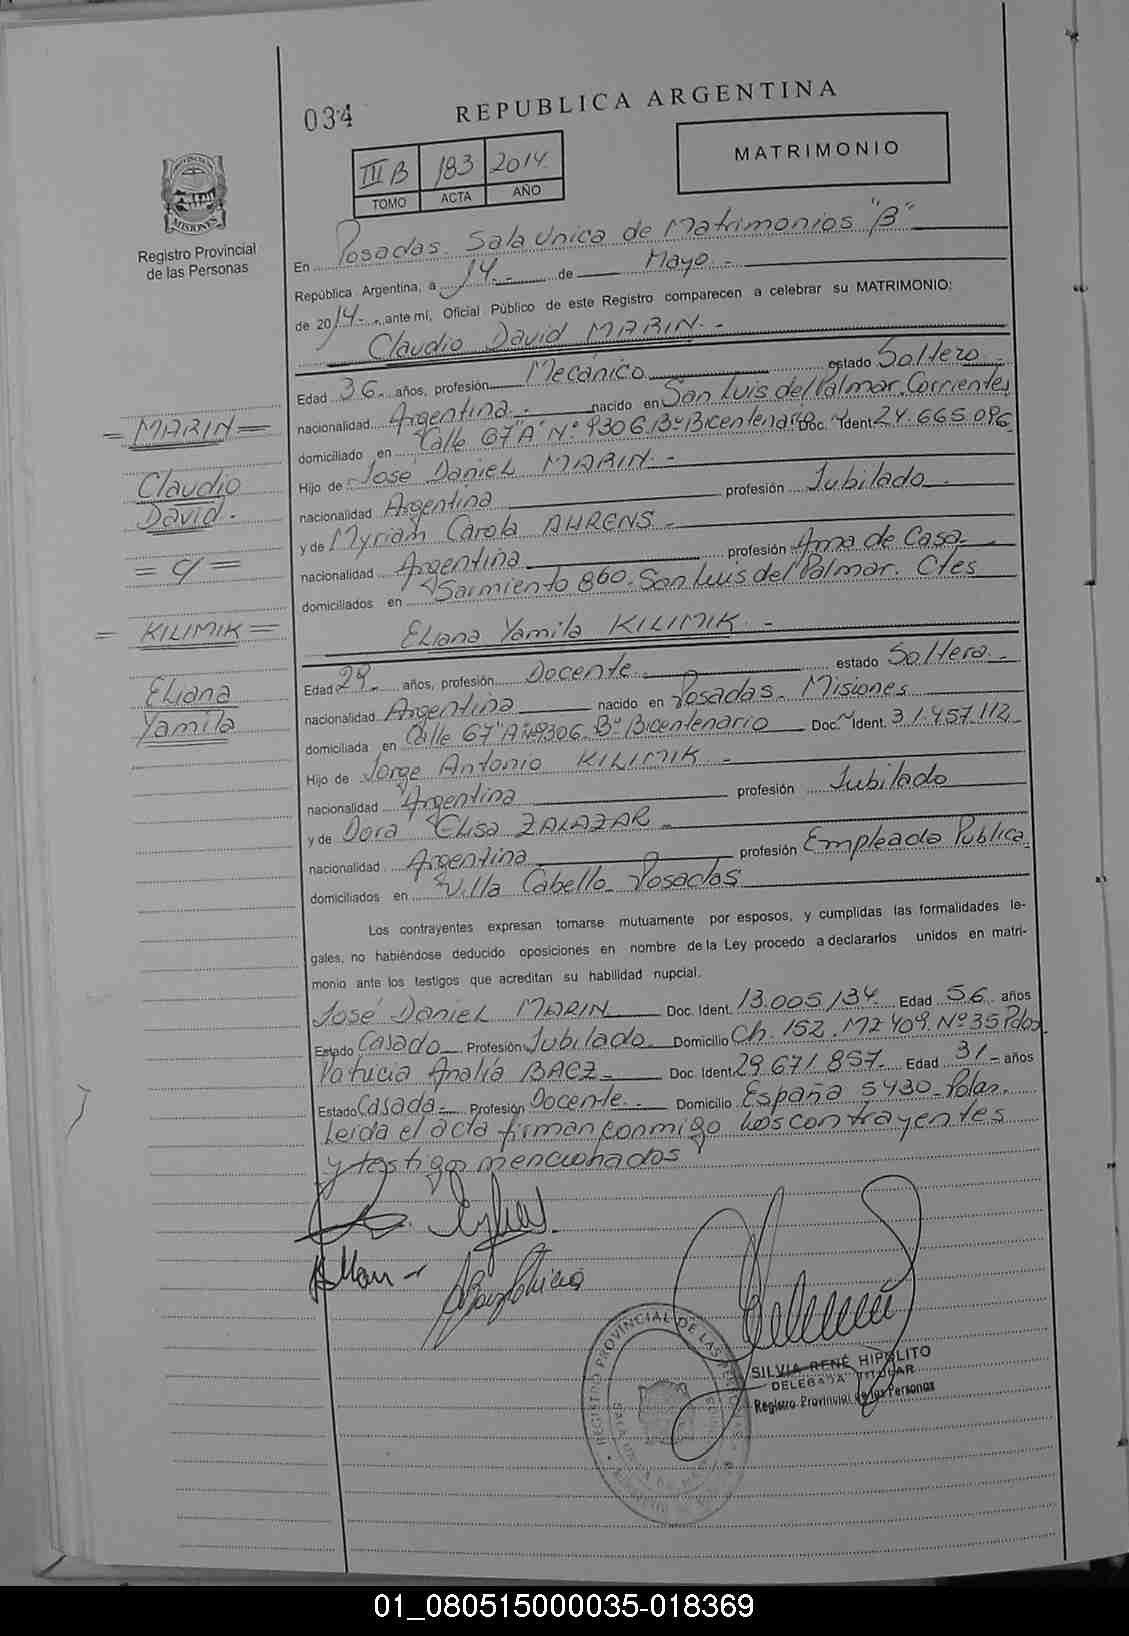 034
REPUBLICA ARGENTINA
MATRIMONIO
III B 183 2014
TOMO ACTA AÑO
Registro Provincial
de las Personas
En Posadas. Sala Unica de Matrimonios "B"
República Argentina, a 14.- de Mayo.-
de 2014.- ante mí, Oficial Público de este Registro comparecen a celebrar su MATRIMONIO:
Claudio David MARIN.-
Edad 36.- años, profesión Mecánico estado Soltero
nacionalidad Argentina.- nacido en San Luis del Palmar. Corrientes
domiciliado en Calle 67 "A" Nº 9306. Bº Bicentenario Doc. Ident. 24.665.096
Hijo de José Daniel MARIN.-
nacionalidad Argentina profesión Jubilado.-
y de Myriam Carola AHRENS.-
nacionalidad Argentina profesión Ama de Casa.-
domiciliados en Sarmiento 860. San Luis del Palmar. Ctes
Eliana Yamila KILIMIK.-
Edad 29.- años, profesión Docente.- estado Soltera.-
nacionalidad Argentina nacido en Posadas. Misiones
domiciliada en Calle 67 "A" Nº 9306. Bº Bicentenario Doc. Ident. 31.457.112
Hijo de Jorge Antonio KILIMIK.-
nacionalidad Argentina profesión Jubilado
y de Dora Elisa ZALAZAR.-
nacionalidad Argentina profesión Empleada Publica
domiciliados en Villa Cabello. Posadas
Los contrayentes expresan tomarse mutuamente por esposos, y cumplidas las formalidades le-
gales, no habiéndose deducido oposiciones en nombre de la Ley procedo a declararlos unidos en matri-
monio ante los testigos que acreditan su habilidad nupcial.
José Daniel MARIN Doc. Ident. 13.005.134 Edad 56 años
Estado Casado Profesión Jubilado. Domicilio Ch. 152. MZ 409. Nº 35 Pdas.
Patricia Analia BAEZ Doc. Ident. 29.671.857.- Edad 31.- años
Estado Casada.- Profesión Docente.- Domicilio España 5430-
Leida el acta firman conmigo los contrayentes
y testigo mencionados
= MARIN =
Claudio
David.-
= C/ =
= KILIMIK =
Eliana
Yamila
SILVIA RENÉ HIPOLITO
DELEGADA TITULAR
Registro Provincial de las Personas
REGISTRO PROVINCIAL DE LAS PERSONAS
01_080515000035-018369